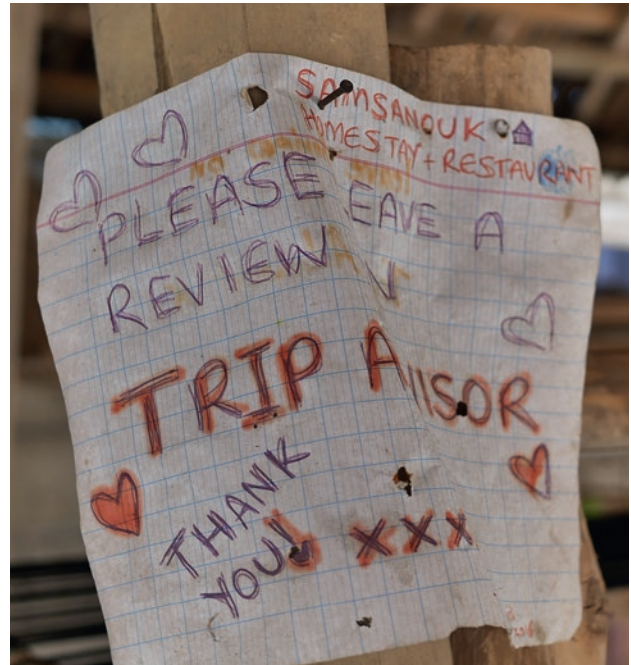 SAMSANOUK
HOMESTAY + RESTAURANT
PLEASE EAVE A
REVIEW N
TRIP A VISOR
THANK
YOU! XXX